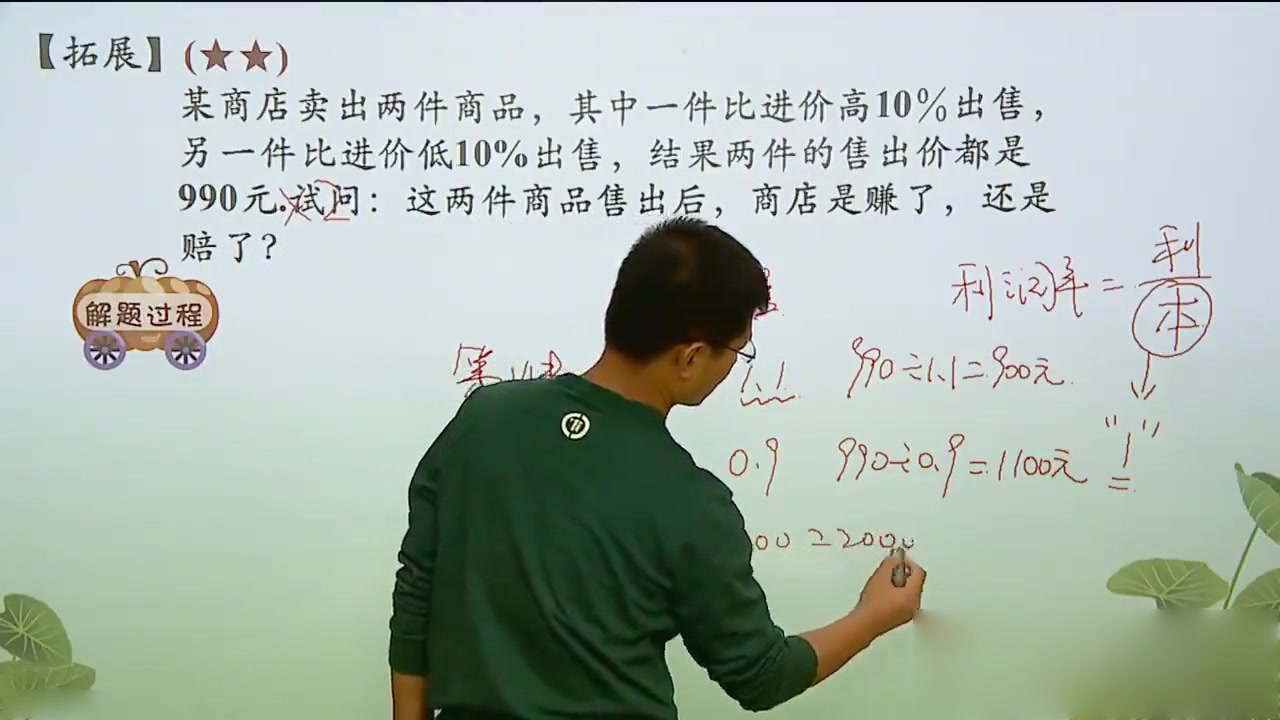 【拓展】(★★)
某商店卖出两件商品，其中一件比进价高10%出售，
另一件比进价低10%出售，结果两件的售出价都是
990元.试问：这两件商品售出后，商店是赚了，还是
赔了？
解题过程
利润率=利/本
1.1 990÷1.1=900元
0.9 990÷0.9=1100元 "1"
00=2000